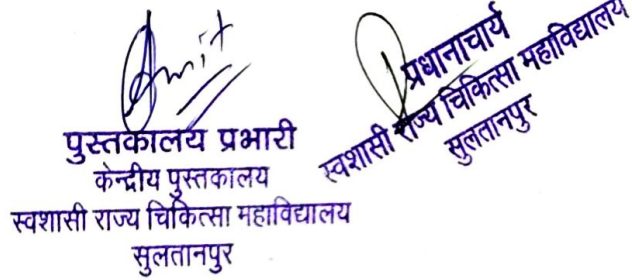 Amit
पुस्तकालय प्रभारी
केन्द्रीय पुस्तकालय
स्वशासी राज्य चिकित्सा महाविद्यालय
सुलतानपुर
प्रधानाचार्य
स्वशासी राज्य चिकित्सा महाविद्यालय
सुलतानपुर